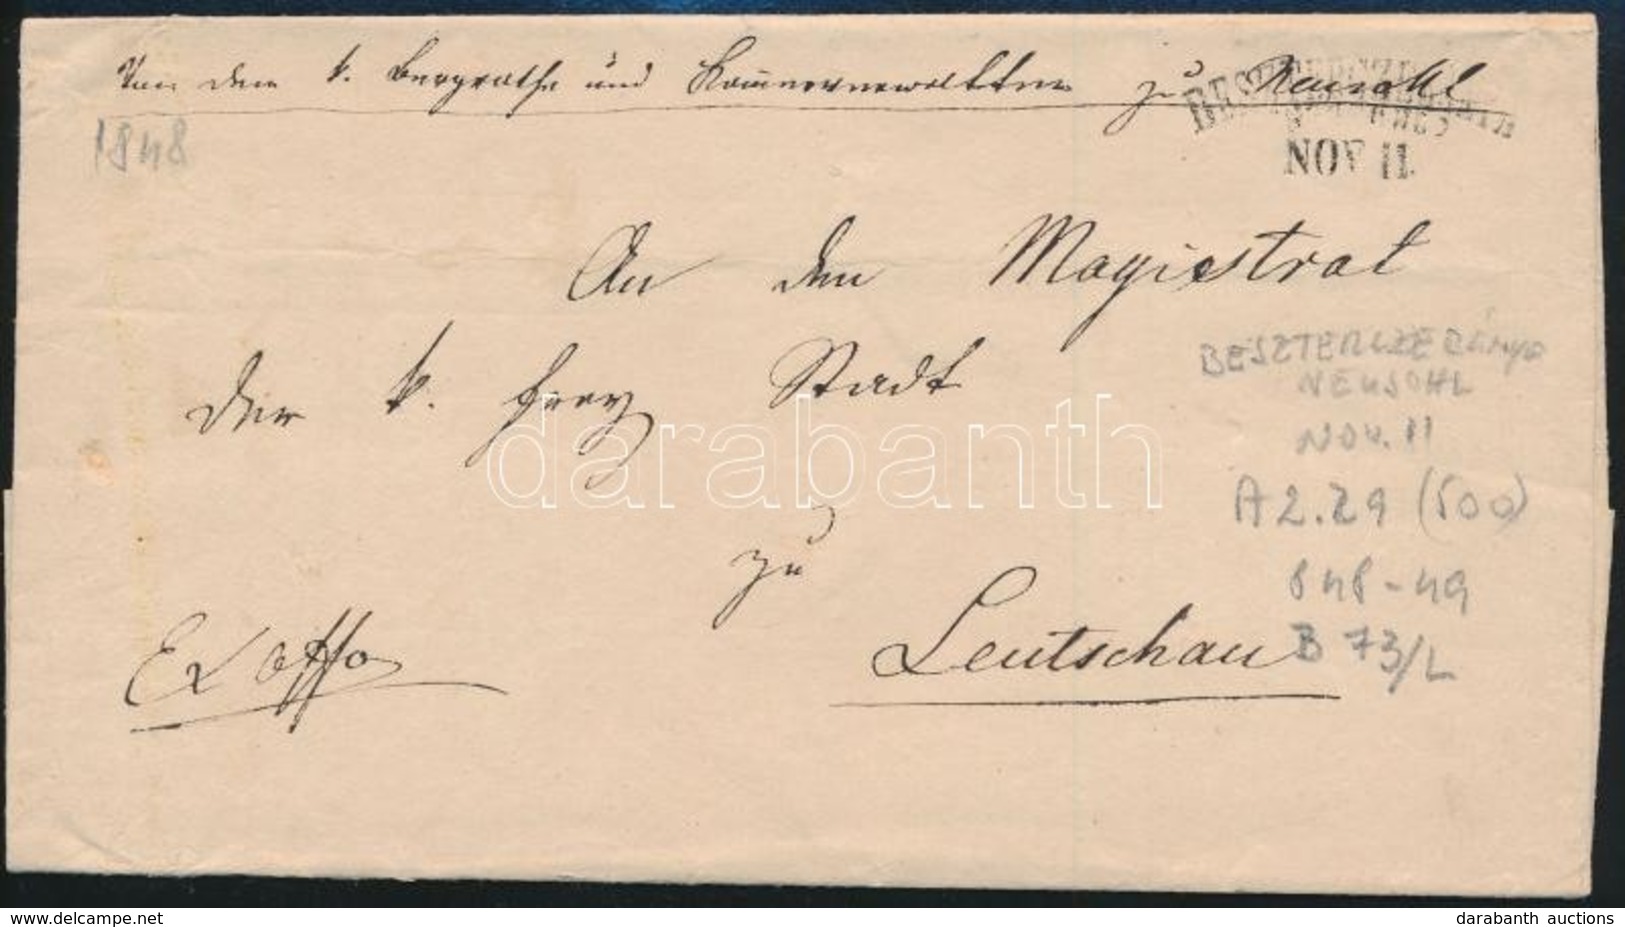 Von dem k. Bergrathe und Kammerverwaltter zu Neusohl
NOV 11.
1848
An den Magistrat
der k. frey Stadt
zu
Leutschau
Ex offo
BESZTERCZEBÁNYA
NEUSOHL
NOV. 11
A 2.29 (500)
848-49
B 73/L
darabanth
www.delcampe.net
darabanth auctions